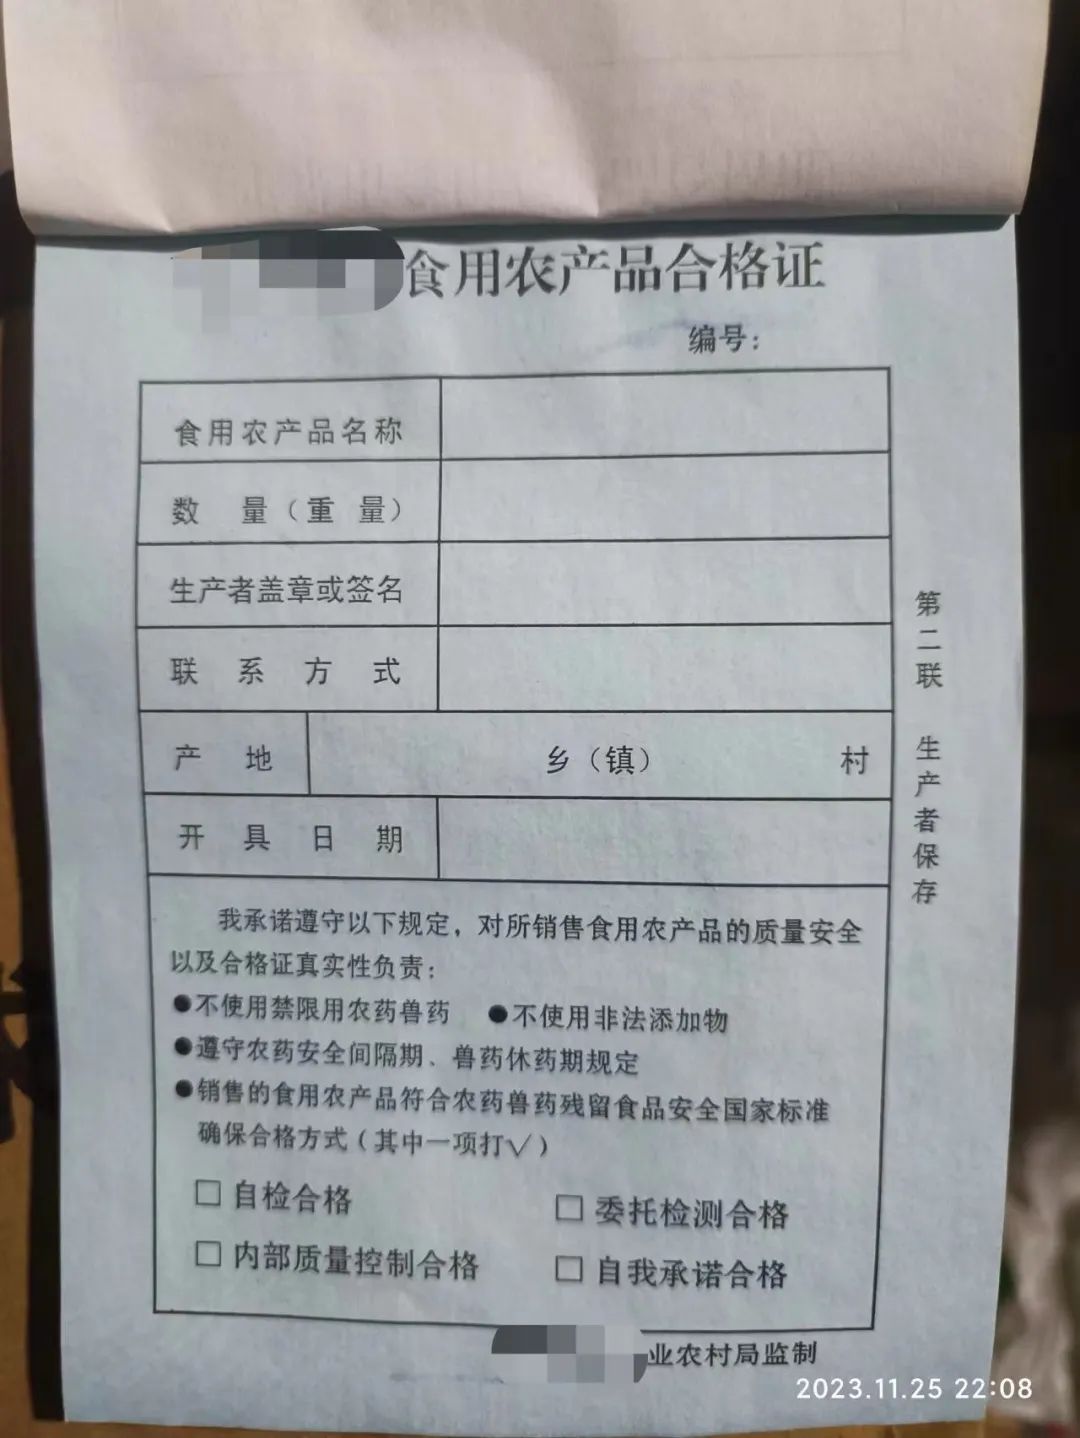 食用农产品合格证
编号：
食用农产品名称
数 量（重 量）
生产者盖章或签名
联 系 方 式
产 地 乡（镇） 村
开 具 日 期
我承诺遵守以下规定，对所销售食用农产品的质量安全
以及合格证真实性负责：
●不使用禁限用农药兽药 ●不使用非法添加物
●遵守农药安全间隔期、兽药休药期规定
●销售的食用农产品符合农药兽药残留食品安全国家标准
确保合格方式（其中一项打√）
□ 自检合格 □ 委托检测合格
□ 内部质量控制合格 □ 自我承诺合格
业农村局监制
第二联 生产者保存
2023.11.25 22:08